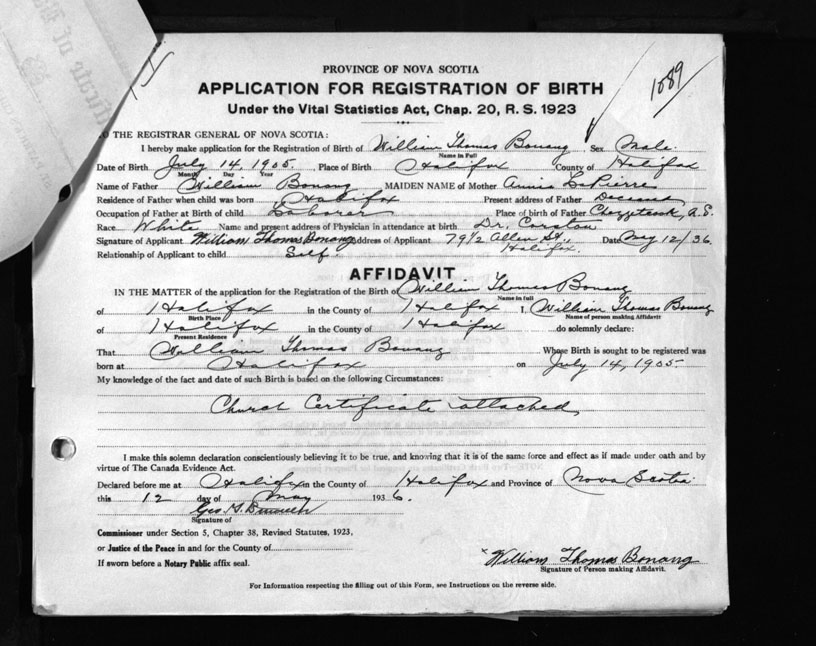 1889
PROVINCE OF NOVA SCOTIA
APPLICATION FOR REGISTRATION OF BIRTH
Under the Vital Statistics Act, Chap. 20, R. S. 1923
TO THE REGISTRAR GENERAL OF NOVA SCOTIA:
I hereby make application for the Registration of Birth of William Thomas Bonang Sex Male.
Name in Full
Date of Birth July 14, 1905. Place of Birth Halifax County of Halifax
Month Day Year
Name of Father William Bonang MAIDEN NAME of Mother Annie LaPierre
Residence of Father when child was born Halifax Present address of Father Deceased
Occupation of Father at Birth of child Laborer Place of birth of Father Chezzetcook, N.S.
Race White Name and present address of Physician in attendance at birth Dr.
Signature of Applicant William Thomas Bonang Address of Applicant 79½ Allen St., Halifax. Date May 12/36.
Relationship of Applicant to child Self.
AFFIDAVIT
IN THE MATTER of the application for the Registration of the Birth of William Thomas Bonang
Name in full
of Halifax in the County of Halifax I, William Thomas Bonang
Birth Place Name of person making Affidavit
of Halifax in the County of Halifax do solemnly declare:
Present Residence
That William Thomas Bonang Whose Birth is sought to be registered was
born at Halifax on July 14, 1905
My knowledge of the fact and date of such Birth is based on the following Circumstances:
Church Certificate attached
I make this solemn declaration conscientiously believing it to be true, and knowing that it is of the same force and effect as if made under oath and by
virtue of The Canada Evidence Act.
Declared before me at Halifax in the County of Halifax and Province of Nova Scotia
this 12 day of May 1936.
Geo. H.
Signature of
Commissioner under Section 5, Chapter 38, Revised Statutes, 1923,
or Justice of the Peace in and for the County of
If sworn before a Notary Public affix seal.
x William Thomas Bonang
Signature of Person making Affidavit.
For Information respecting the filling out of this Form, see Instructions on the reverse side.